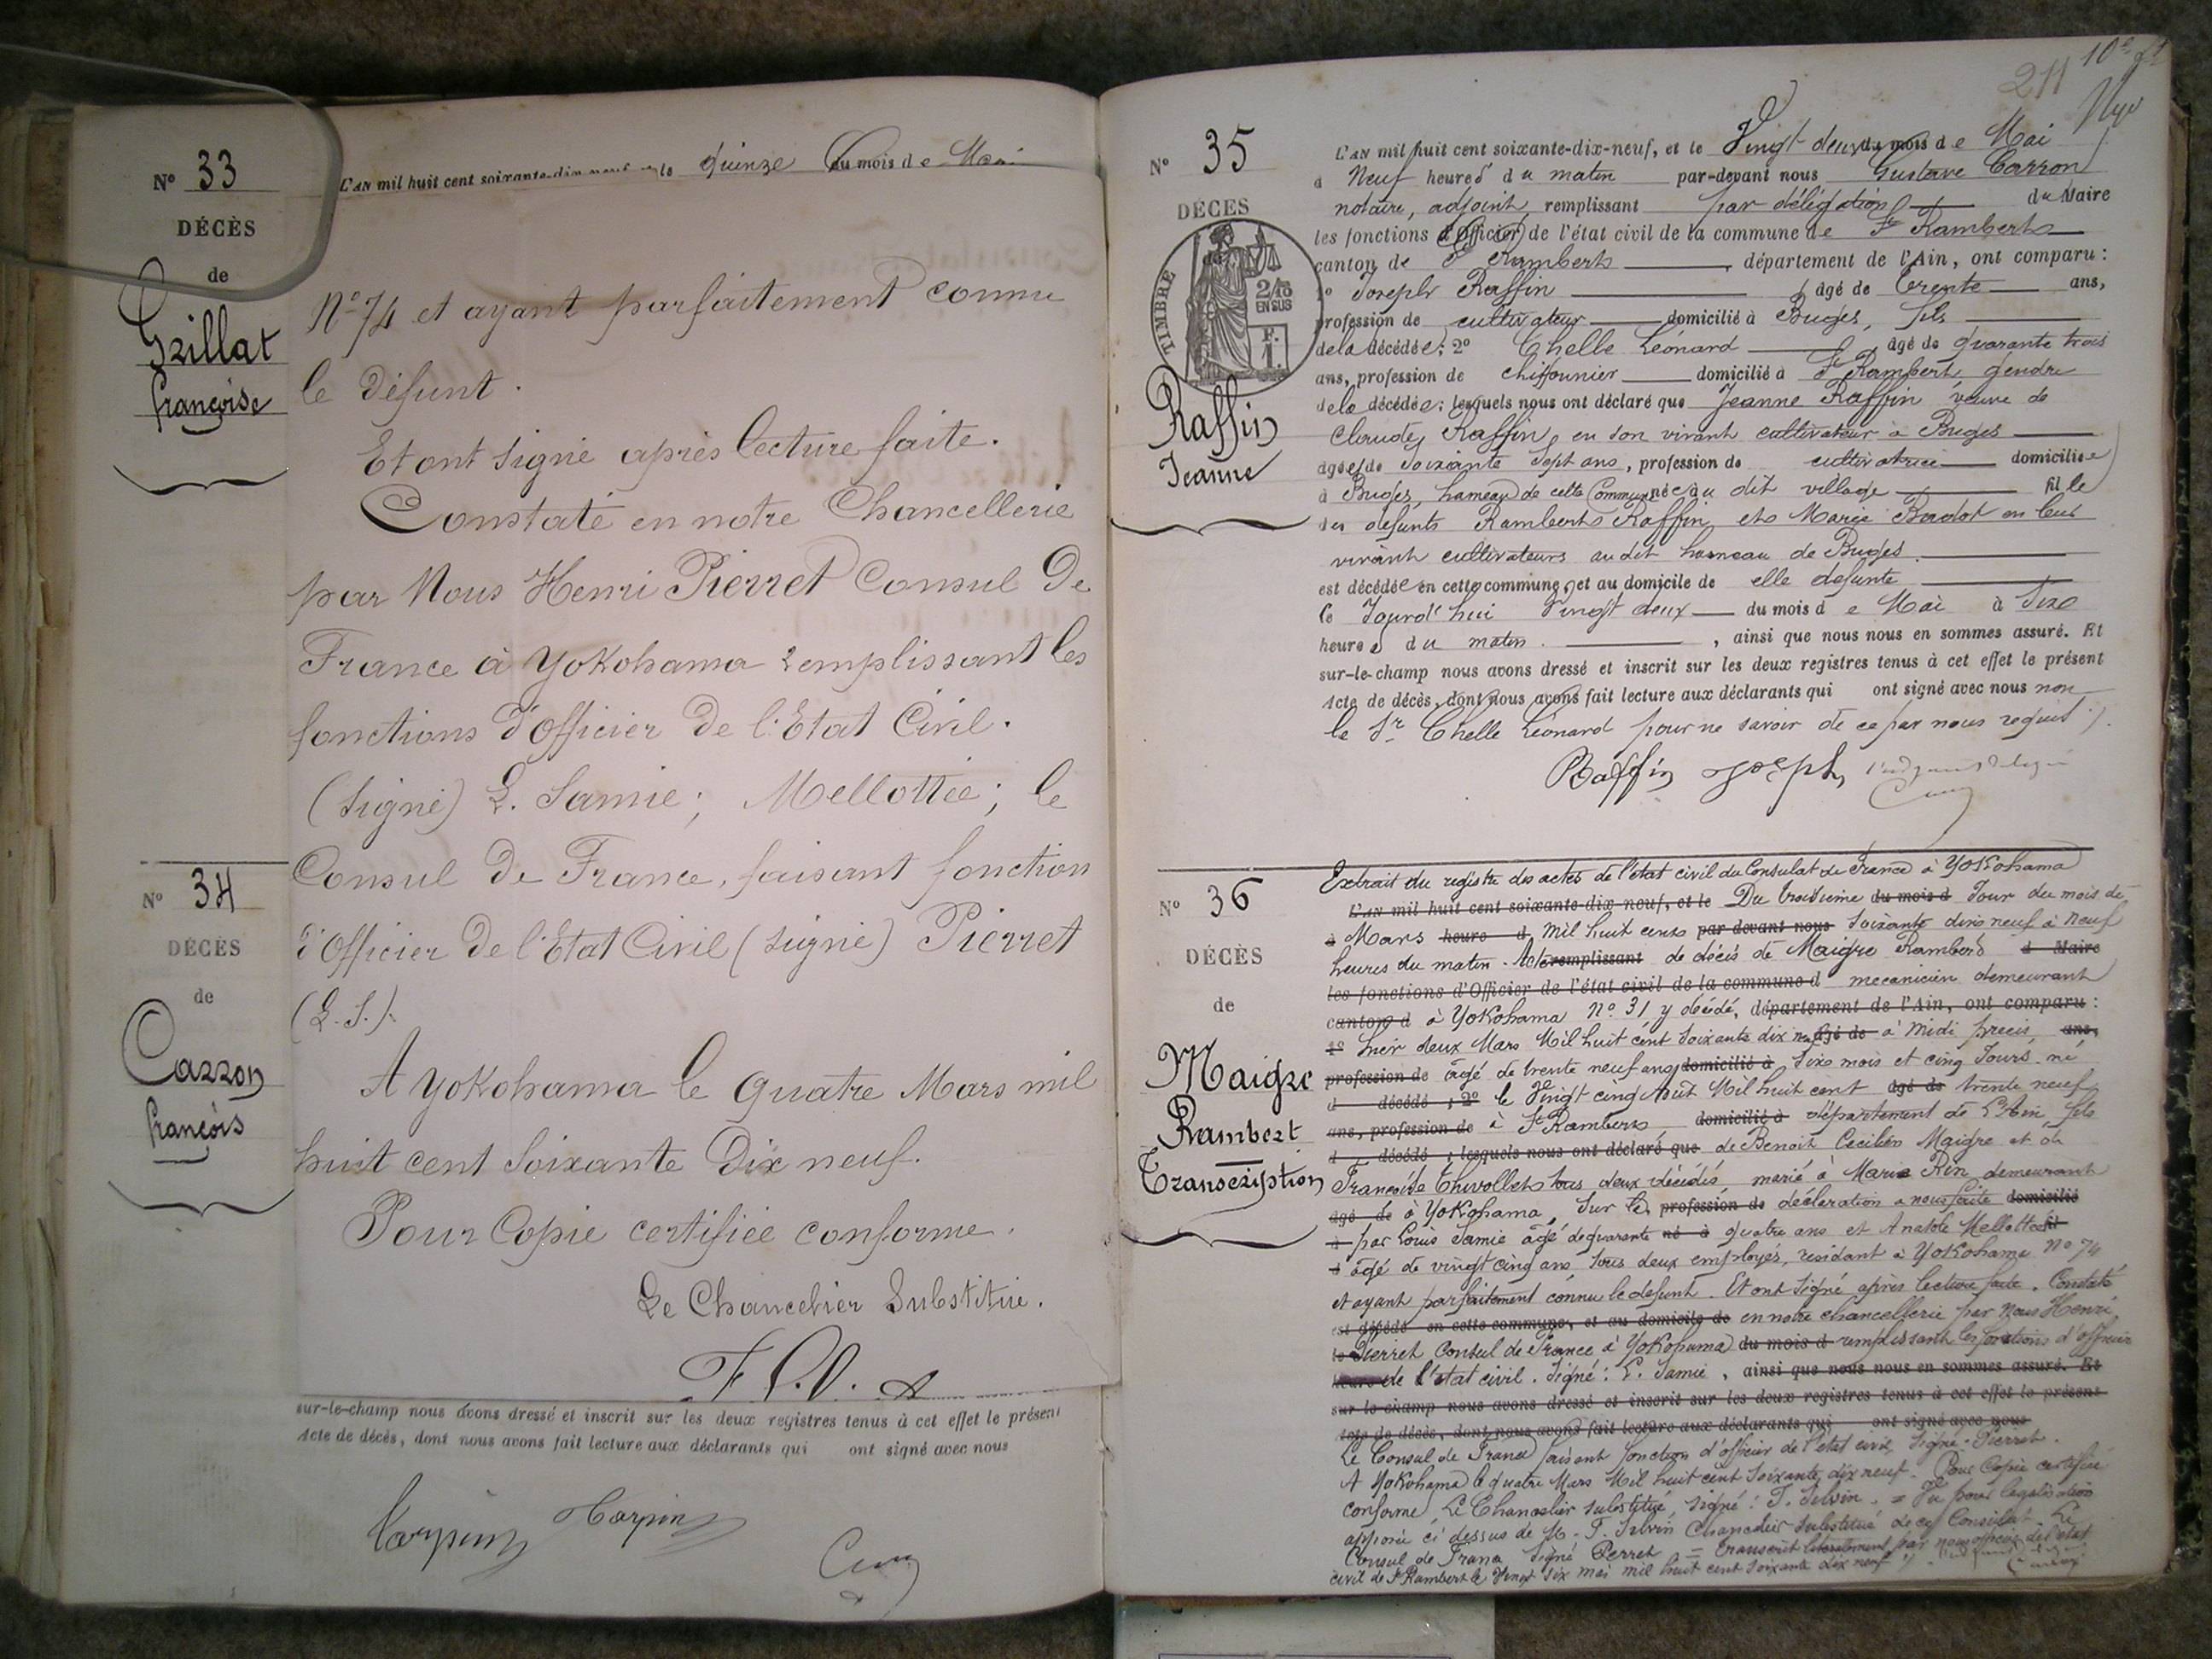 N° 33
DÉCÈS
de
Grillat
françoise
L'AN mil huit cent soixante-dix-neuf et le quinze du mois de Mai
N° 74 et ayant parfaitement connu
le défunt.
Et ont signé après lecture faite.
Constaté en notre Chancellerie
par Nous Henri Pierret Consul De
France à Yokohama remplissant les
fonctions d'Officier De l'Etat Civil.
(signé) L. Samie; Mellottée; le
Consul De France, faisant fonction
d'Officier De l'Etat Civil (signé) Pierret
(L.S.).
A Yokohama le quatre Mars mil
huit cent soixante Dix neuf.
Pour Copie certifiée conforme.
Le Chancelier Substitué.
N° 34
DÉCÈS
de
Carron
françois
sur-le-champ nous avons dressé et inscrit sur les deux registres tenus à cet effet le présent
Acte de décès, dont nous avons fait lecture aux déclarants qui ont signé avec nous
211
N° 35
DÉCES
TIMBRE
2/10
EN SUS
F.
1.
Raffin
Jeanne
L'AN mil huit cent soixante-dix-neuf, et le Vingt deux du mois de Mai
à Neuf heures du matin par-devant nous Gustave Carron
notaire, adjoint, remplissant par délégation du Maire
les fonctions d'Officier de l'état civil de la commune de St Rambert
canton de St Rambert, département de l'Ain, ont comparu :
1° Joseph Raffin âgé de trente ans,
profession de cultivateur domicilié à Buges, fils
de la décédée; 2° Chelle Léonard, âgé de quarante trois
ans, profession de chiffonnier domicilié à St Rambert, gendre
de la décédée; lesquels nous ont déclaré que Jeanne Raffin veuve de
Claude Raffin, en son vivant cultivateur à Buges
âgée de soixante sept ans, profession de cultivatrice domiciliée
à Buges, hameau de cette Commune née au dit village fille
des défunts Rambert Raffin et Marie en leur
vivant cultivateurs au dit hameau de Buges.
est décédée en cette commune, et au domicile de elle défunte
le Jourd'hui Vingt deux du mois de Mai à Six
heures du matin, ainsi que nous nous en sommes assuré. Et
sur-le-champ nous avons dressé et inscrit sur les deux registres tenus à cet effet le présent
Acte de décès, dont nous avons fait lecture aux déclarants qui ont signé avec nous non
le Sr Chelle Léonard pour ne savoir de ce par nous requis
Raffin joseph
N° 36
DÉCÈS
de
Maigre
Rambert
Transcription
Extrait du registre des actes de l'état civil du Consulat de France à Yokohama
L'AN mil huit cent soixante-dix-neuf, et le Du troisieme du mois d Jour du mois de
à Mars heure d mil huit cent par devant nous soixante dix neuf à neuf
heures du matin. Acte remplissant de décès de Maigre Rambert d Maire
les fonctions d'Officier de l'état civil de la commune d mecanicien demeurant
canton d à Yokohama N° 31 y décédé, département de l'Ain, ont comparu :
1° hier deux Mars Mil huit cent soixante dix neuf âgé de à midi précis, ans,
profession de âgé de trente neuf ans domicilié à six mois et cinq Jours né
d décédé ; 2° le Vingt cinq Août Mil huit cent âgé de trente neuf
ans, profession de à St Rambert, domicilié à département de l'Ain, fils
d décédé ; lesquels nous ont déclaré que de Benoit Cecilien Maigre et de
Françoise Thevollet tous deux décédés, marié à Marie Rin demeurant
âgé de à Yokohama, Sur la profession de déclaration a nous faite domicilié
à par Louis Samie âgé de quarante né à quatre ans et Anatole Mellottée fil
d âgé de vingt cinq ans tous deux employés, residant à Yokohama N° 74
et ayant parfaitement connu le défunt. Et ont signé après lecture faite. Constaté
est décédé en cette commune, et au domicile de en notre chancellerie par nous Henri
le Pierret Consul de France à Yokohama du mois d remplissant les fonctions d'officier
heure de l'état civil. Signé : L. Samie, ainsi que nous nous en sommes assuré. Et
sur-le-champ nous avons dressé et inscrit sur les deux registres tenus à cet effet le présent
Acte de décès, dont nous avons fait lecture aux déclarants qui ont signé avec nous
Le Consul de France faisant fonction d'officier de l'état civil, Signé : Pierret.
A Yokohama le quatre Mars Mil huit cent soixante dix neuf. Pour Copie certifiée
conforme, Le Chancelier substitué, signé : F. Silvin. = Vu pour légalisation
apposée ci dessus de M. F. Silvin Chancelier substitué de ce Consulat. Le
Consul de France Signé Perret = transcrit littéralement par nous officier de l'état
civil de St Rambert le Vingt six mai mil huit cent soixante dix neuf